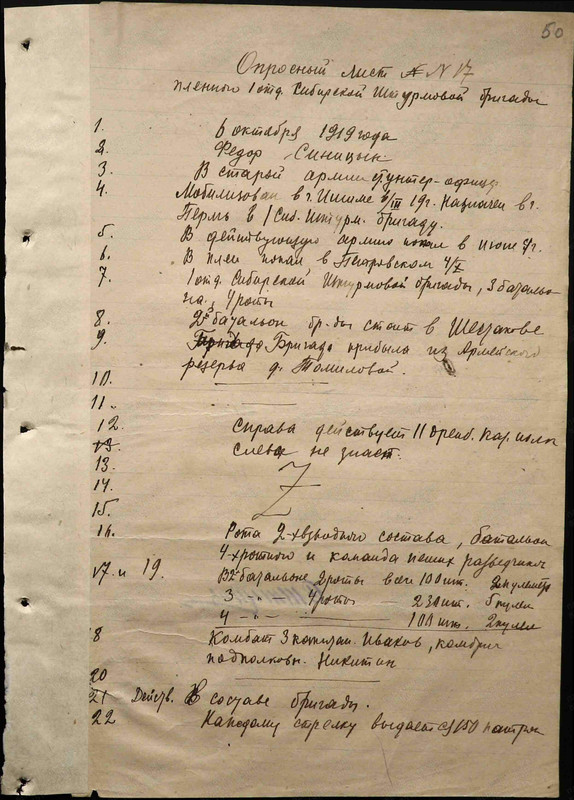 50
Опросный лист № 17
пленного 1 отд. Сибирской Штурмовой бригады
1. 6 октября 1919 года
2. Федор Синицын
3. В старой армии унтер-офиц.
4. Мобилизован в г. Ишиме /III 19 г. Назначен в г.
Пермь в 1 Сиб. Штурм. бригаду.
5. В действующую армию попал в июне
6. В плен попал в Петровском 4/X
7. 1 отд. Сибирской Штурмовой бригады, 3 батальо
на, 4 роты
8. 2й батальон бр-ды стоит в
9. Бригада прибыла из Армейского
резерва д. Томиловой.
10.
11.
12. Справа действует 11 Оренб. каз. полк
слева не знает.
13.
13.
14.
15.
16. Рота 2-хвзводного состава, батальон
4-хротного и команда пеших разведчик
17 и 19. В 2 батальоне 2 роты всего 100 шт. 2 пулемета
3 " 4 роты 230 шт. 5 пулем
4 - " - 100 шт. 2 пулем
8 Комбат 3 капитан Иваков, комбриг
подполковн. Никитин
20
21 Действ. В составе бригады.
22 Каждому стрелку выдается 150 патрон